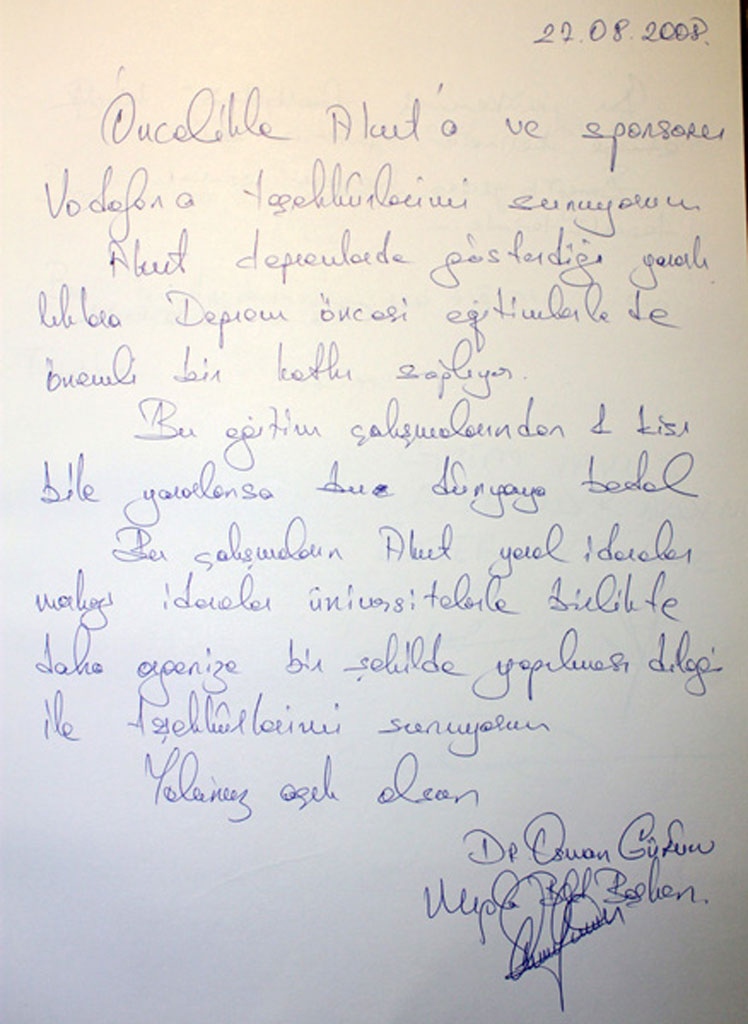 27.08.2008.
Öncelikle Akut'a ve sponsoru
Vodafona teşekkürlerimi sunuyorum
Akut depremlerde gösterdiği yararlı
lıklara Deprem öncesi eğitimlerle de
önemli bir katkı sağlıyor.
Bu eğitim çalışmalarından 1 kişi
bile yararlansa dünyaya bedel
Bu çalışmaların Akut yerel idareler
merkezi idareler üniversitelerle birlikte
daha organize bir şekilde yapılması dileği
ile teşekkürlerimi sunuyorum
Yolunuz açık olsun
Dr. Osman Gürün
Muğla Bld Başkanı.